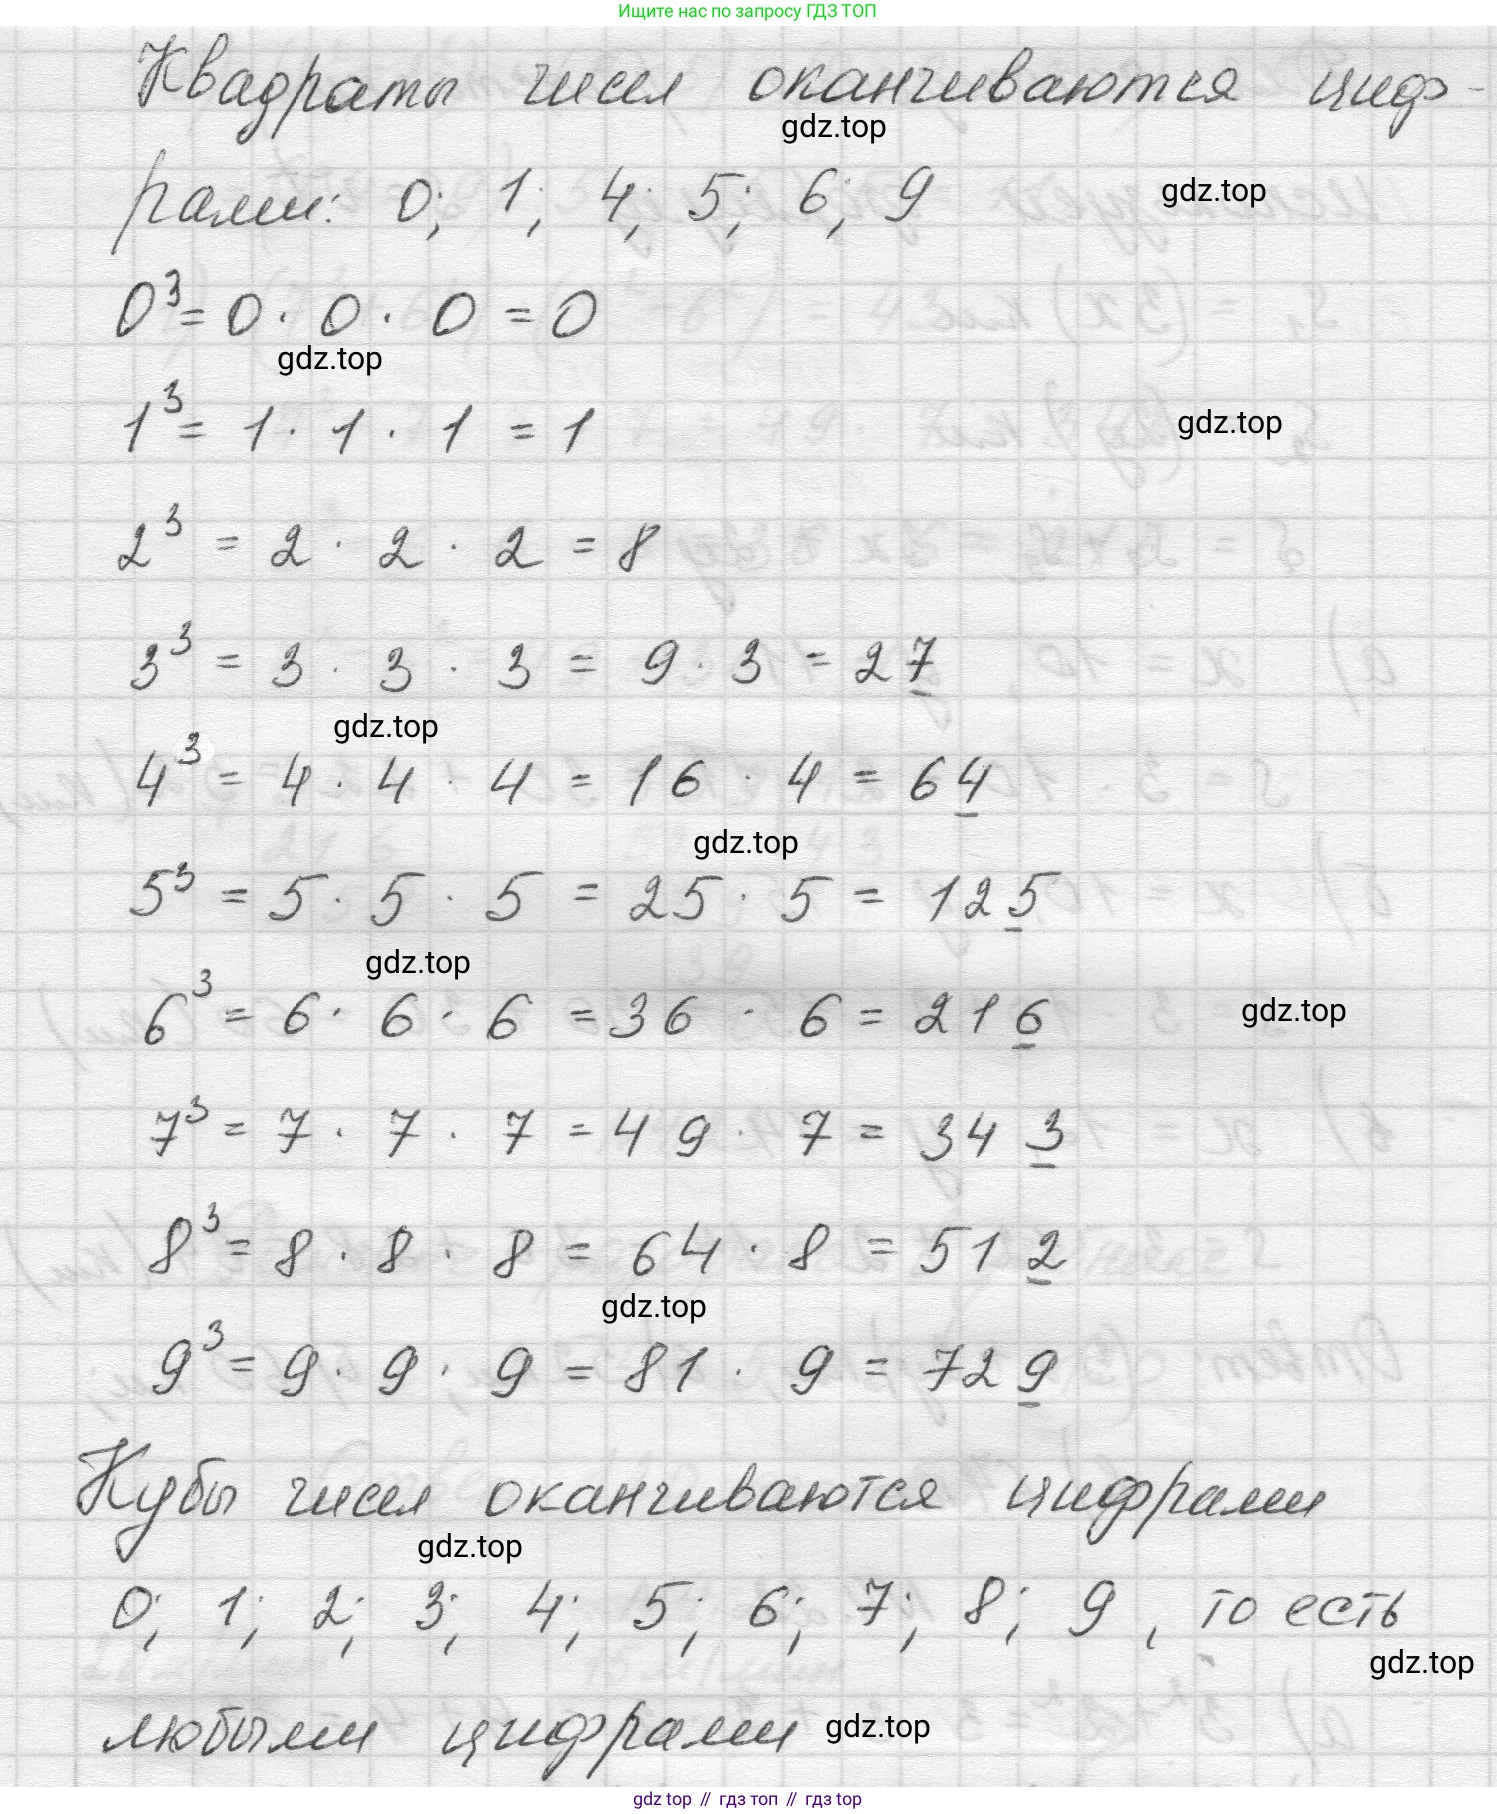 Ищите нас по запросу ГДЗ ТОП
Квадраты чисел оканчиваются циф-
gdz.top
рами: 0; 1; 4; 5; 6; 9
gdz.top
0³ = 0 · 0 · 0 = 0
gdz.top
1³ = 1 · 1 · 1 = 1
gdz.top
2³ = 2 · 2 · 2 = 8
3³ = 3 · 3 · 3 = 9 · 3 = 27
gdz.top
4³ = 4 · 4 · 4 = 16 · 4 = 64
gdz.top
5³ = 5 · 5 · 5 = 25 · 5 = 125
gdz.top
6³ = 6 · 6 · 6 = 36 · 6 = 216
gdz.top
7³ = 7 · 7 · 7 = 49 · 7 = 343
8³ = 8 · 8 · 8 = 64 · 8 = 512
gdz.top
9³ = 9 · 9 · 9 = 81 · 9 = 729
Кубы чисел оканчиваются цифрами
gdz.top
0; 1; 2; 3; 4; 5; 6; 7; 8; 9, то есть
gdz.top
любыми цифрами gdz.top
gdz top // гдз топ // гдз top